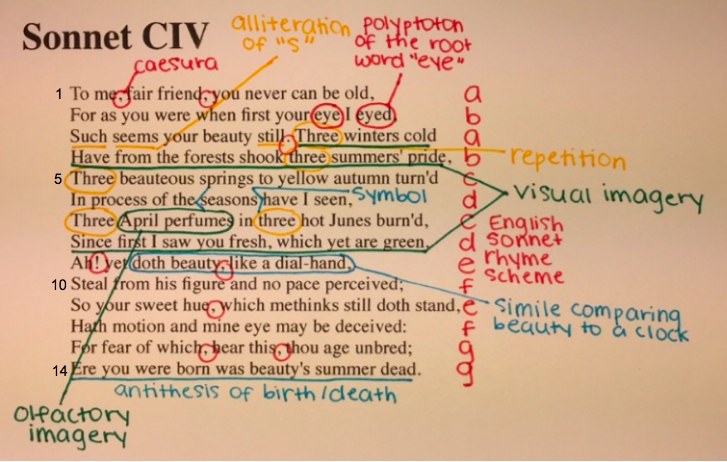 Sonnet CIV
alliteration
of "s"
polyptoton
of the root
word "eye"
caesura
1 To me, fair friend, you never can be old, a
For as you were when first your eye I eyed, b
Such seems your beauty still. Three winters cold a
Have from the forests shook three summers' pride, b
repetition
5 Three beauteous springs to yellow autumn turn'd c
In process of the seasons have I seen, d
symbol
visual imagery
Three April perfumes in three hot Junes burn'd, c
Since first I saw you fresh, which yet are green. d
English
sonnet
rhyme
scheme
Ah! yet doth beauty, like a dial-hand, e
10 Steal from his figure and no pace perceived; f
So your sweet hue, which methinks still doth stand, e
Simile comparing
beauty to a clock
Hath motion and mine eye may be deceived: f
For fear of which, hear this, thou age unbred; g
14 Ere you were born was beauty's summer dead. g
antithesis of birth/death
olfactory
imagery